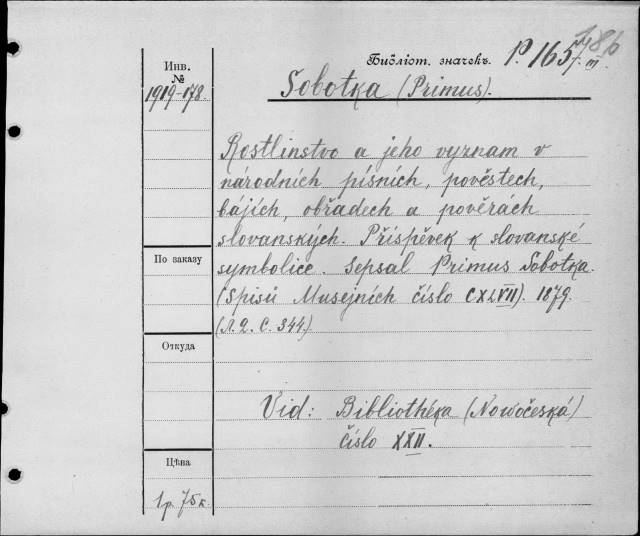 Библіот. значекъ P. 165/III.
Инв.
№
1919-178.
Sobotka (Primus).
Rostlinstvo a jeho vyznam v
národních písních, pověstech,
bájích, obřadech a pověrách
slovanských. Příspěvek k slovanské
symbolice. Sepsal Primus Sobotka.
(Spisů Musejních číslo CXLVII). 1879.
(Л. 2. С. 344.)
По заказу
Откуда
Vid: Bibliothéka (Nowočeská)
číslo XXII.
Цѣна
1р. 75к.